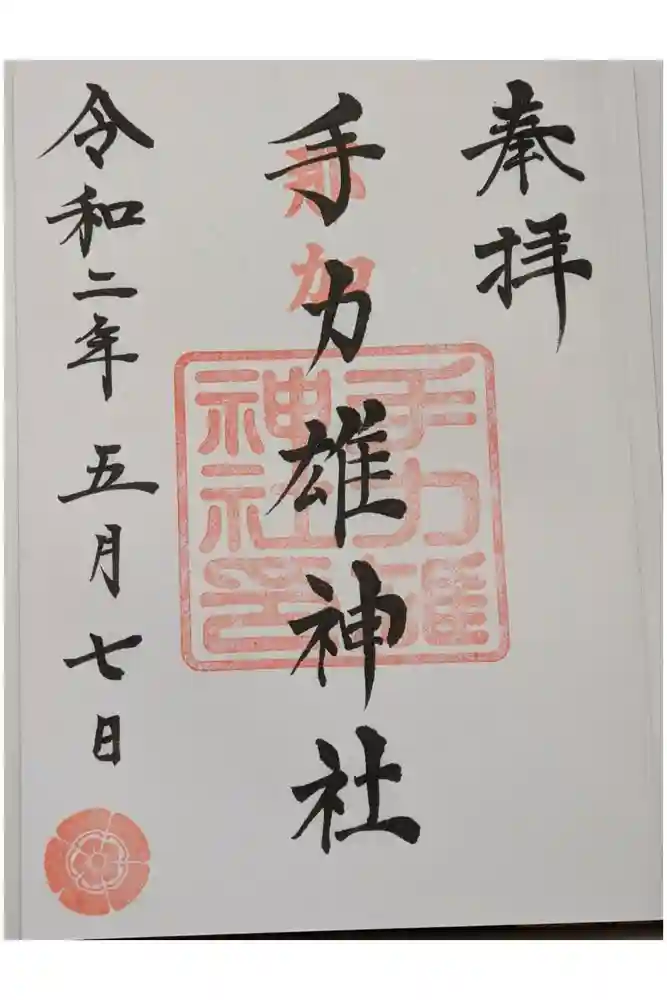 奉拝
那加
手力雄神社
手力雄
神社
令和二年五月七日